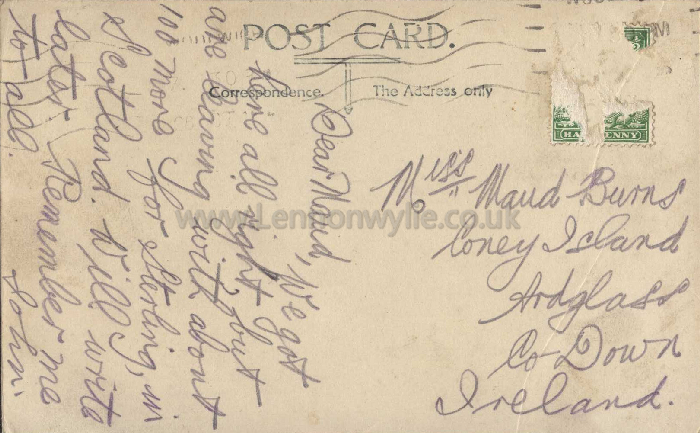 POST CARD.
Correspondence.
The Address only
Dear Maud, We got
here all right but
are leaving with about
100 more for Sterling, in
Scotland. Will write
later Remember me
to all. John.
Miss Maud Burns
Coney Island
Ardglass
Co-Down
Ireland.
www.Lennonwylie.co.uk
HA
ENNY